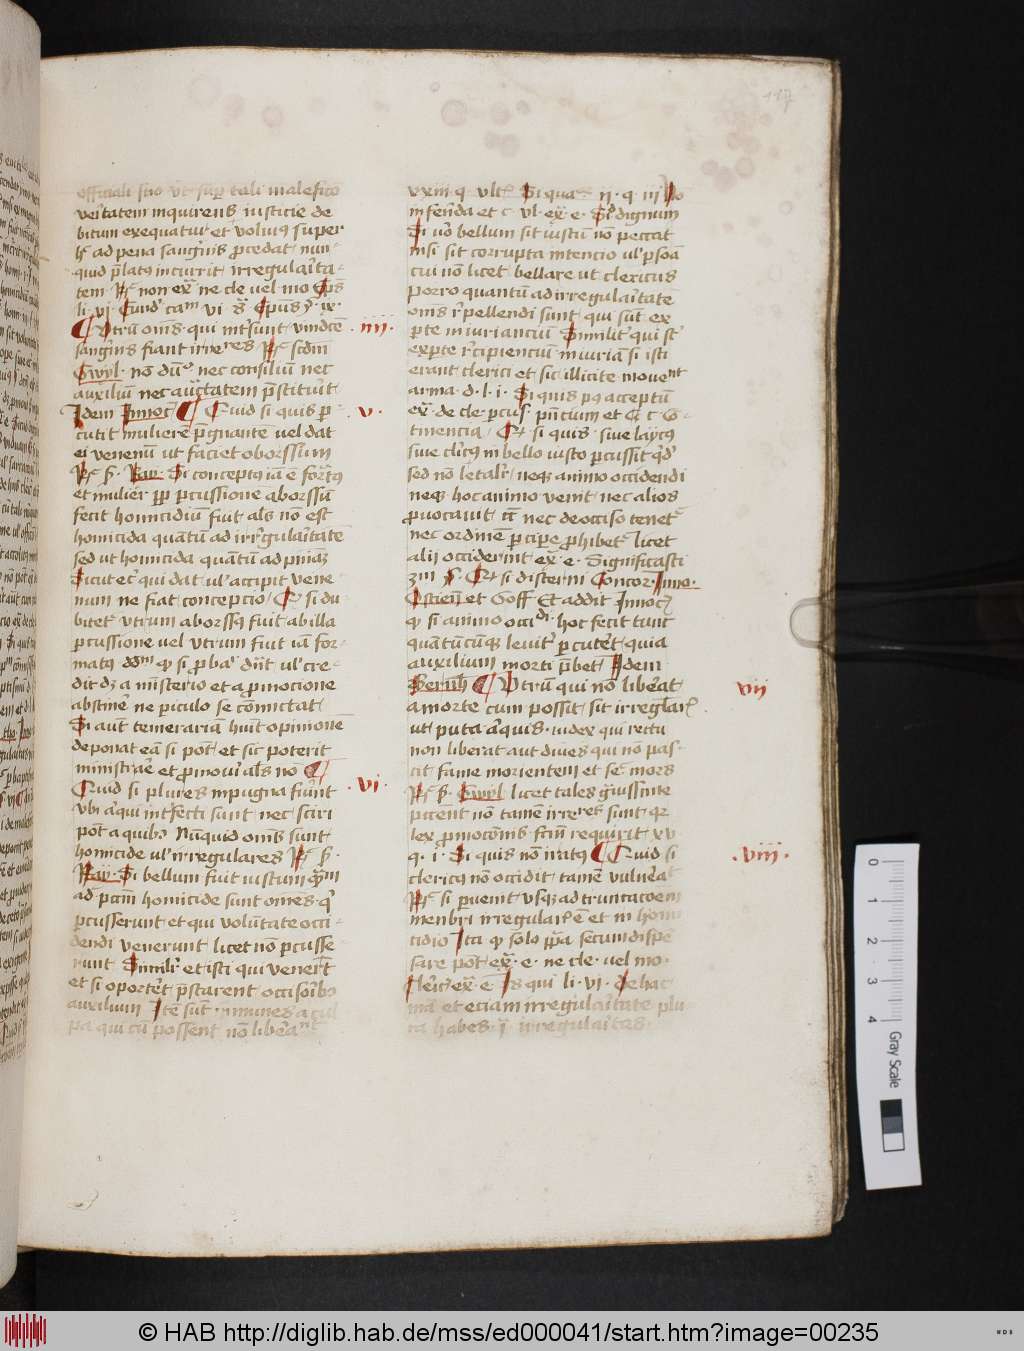 117
officiali suo ut sup tali maleficō
veritatem inquirens iusticie de
bitum exequatur et volius super
hͦ ad pena sanguinis procedat nun
quid platus incurrit irregularita
tem Rͦ non exͣ ne cle vel mo Eps
li vj
¶ Utrum omēs qui intersunt vindcē
sanguinis fiant irreres Rͦ scdm
Gwyl non dūt nec consilium nec
auxilium nec auctatem prestiturit
Idem Innoc ¶ Quid si quis per
cutit mulierē pgnantē vel dat
ei venenū ut faciet oborssum
Rͦ s Ray Si conceptus iā ē formatus
et mulier pp percussione aborssū
fecit homicidiū fiuit als nō est
homicida quātū ad irregularitatē
sed ut homicida quātū ad pniaz
Sicut et qui dat ul accipit vene
num ne fiat concepcio Et si du
bitet utrum aborssus fuit ab illa
percussione vel utrum fuit iā for
matus
dit dz a misterio et a promocione
abstinere ne periculo se cōmittat
Si aut temerariam hūit opinionē
deponat eā si pot et sic poterit
ministrare et promoveri als nō ¶
Quid si plures inpugna fiunt
ubi aliqui intfecti sunt nec sciri
pot a quibus Nunquid omēs sunt
homicide ul irregulares Rͦ s
Ray Si bellum fuit iustum
ad pctm homicide sunt omēs qui
percusserunt et qui voluntate occi
dendi venerunt licet nō percusse
runt Similiter et isti qui venerūt
et si oporteret prestarent occisoribus
auxilium Itē sūt inmunes a cul
pa qui cū possent nō liberant
iiii
v
vi
xxiii q ult Si qua ii q iii
inferēda et c ul exͣ e Si dignum
Si vero bellum sit iustū nō peccat
nisi sit corrupta intencio ul psoa
cui nō licet bellare ut clericus
Porro quantū ad irregularitatē
omēs repellendi sunt qui sunt ex
parte iniuriancium Similiter qui sūt
ex parte recipiencium iniuriā si isti
erant clerici et sic illicite movent
arma d l i Si quis post acceptū
exͣ de cle percus
tinencia Et si quis sive laycus
sive clicus in bello iusto percussit
sed nō letaliter neque animo occidendi
neque hoc animo venit nec alios
provocavit tūc nec de occiso tenetur
nec ordinē percipere prohibetur licet
alii occiderint exͣ e Significasti
Concor Inno
Ostien et Goff Et addit Innoc
quod si animo occidi hoc fecit tunc
quātūcūque leviter percuteret quia
auxilium morti prebet Idem
Bernh ¶ Utrū qui nō liberat
a morte cum possit sit irreglaris
ut puta aliquis iudex qui rectū
non liberat aut dives qui nō pas
cit fame morientem et sec mors
Rͦ s Gwyl licet tales gvissime
peccent nō tamē irreres sunt qr
lex promocōnib fctm requirit xv
q i Si quis nō iratus ¶ Quid si
clericus nō occidit tamē vulnerat
Rͦ si pervenit usque ad truncacoem
menbri irregularis ē et in homi
cidio Ita quod solus papa secum dispē
sare pot exͣ e ne cle vel mo
Clerici exͣ e Is qui li vi De hac
mā et eciam irregularitate plu
ra habes irregularitas
vii
viii
0
1
2
3
4
Gray Scale
© HAB http://diglib.hab.de/mss/ed000041/start.htm?image=00235
WDB